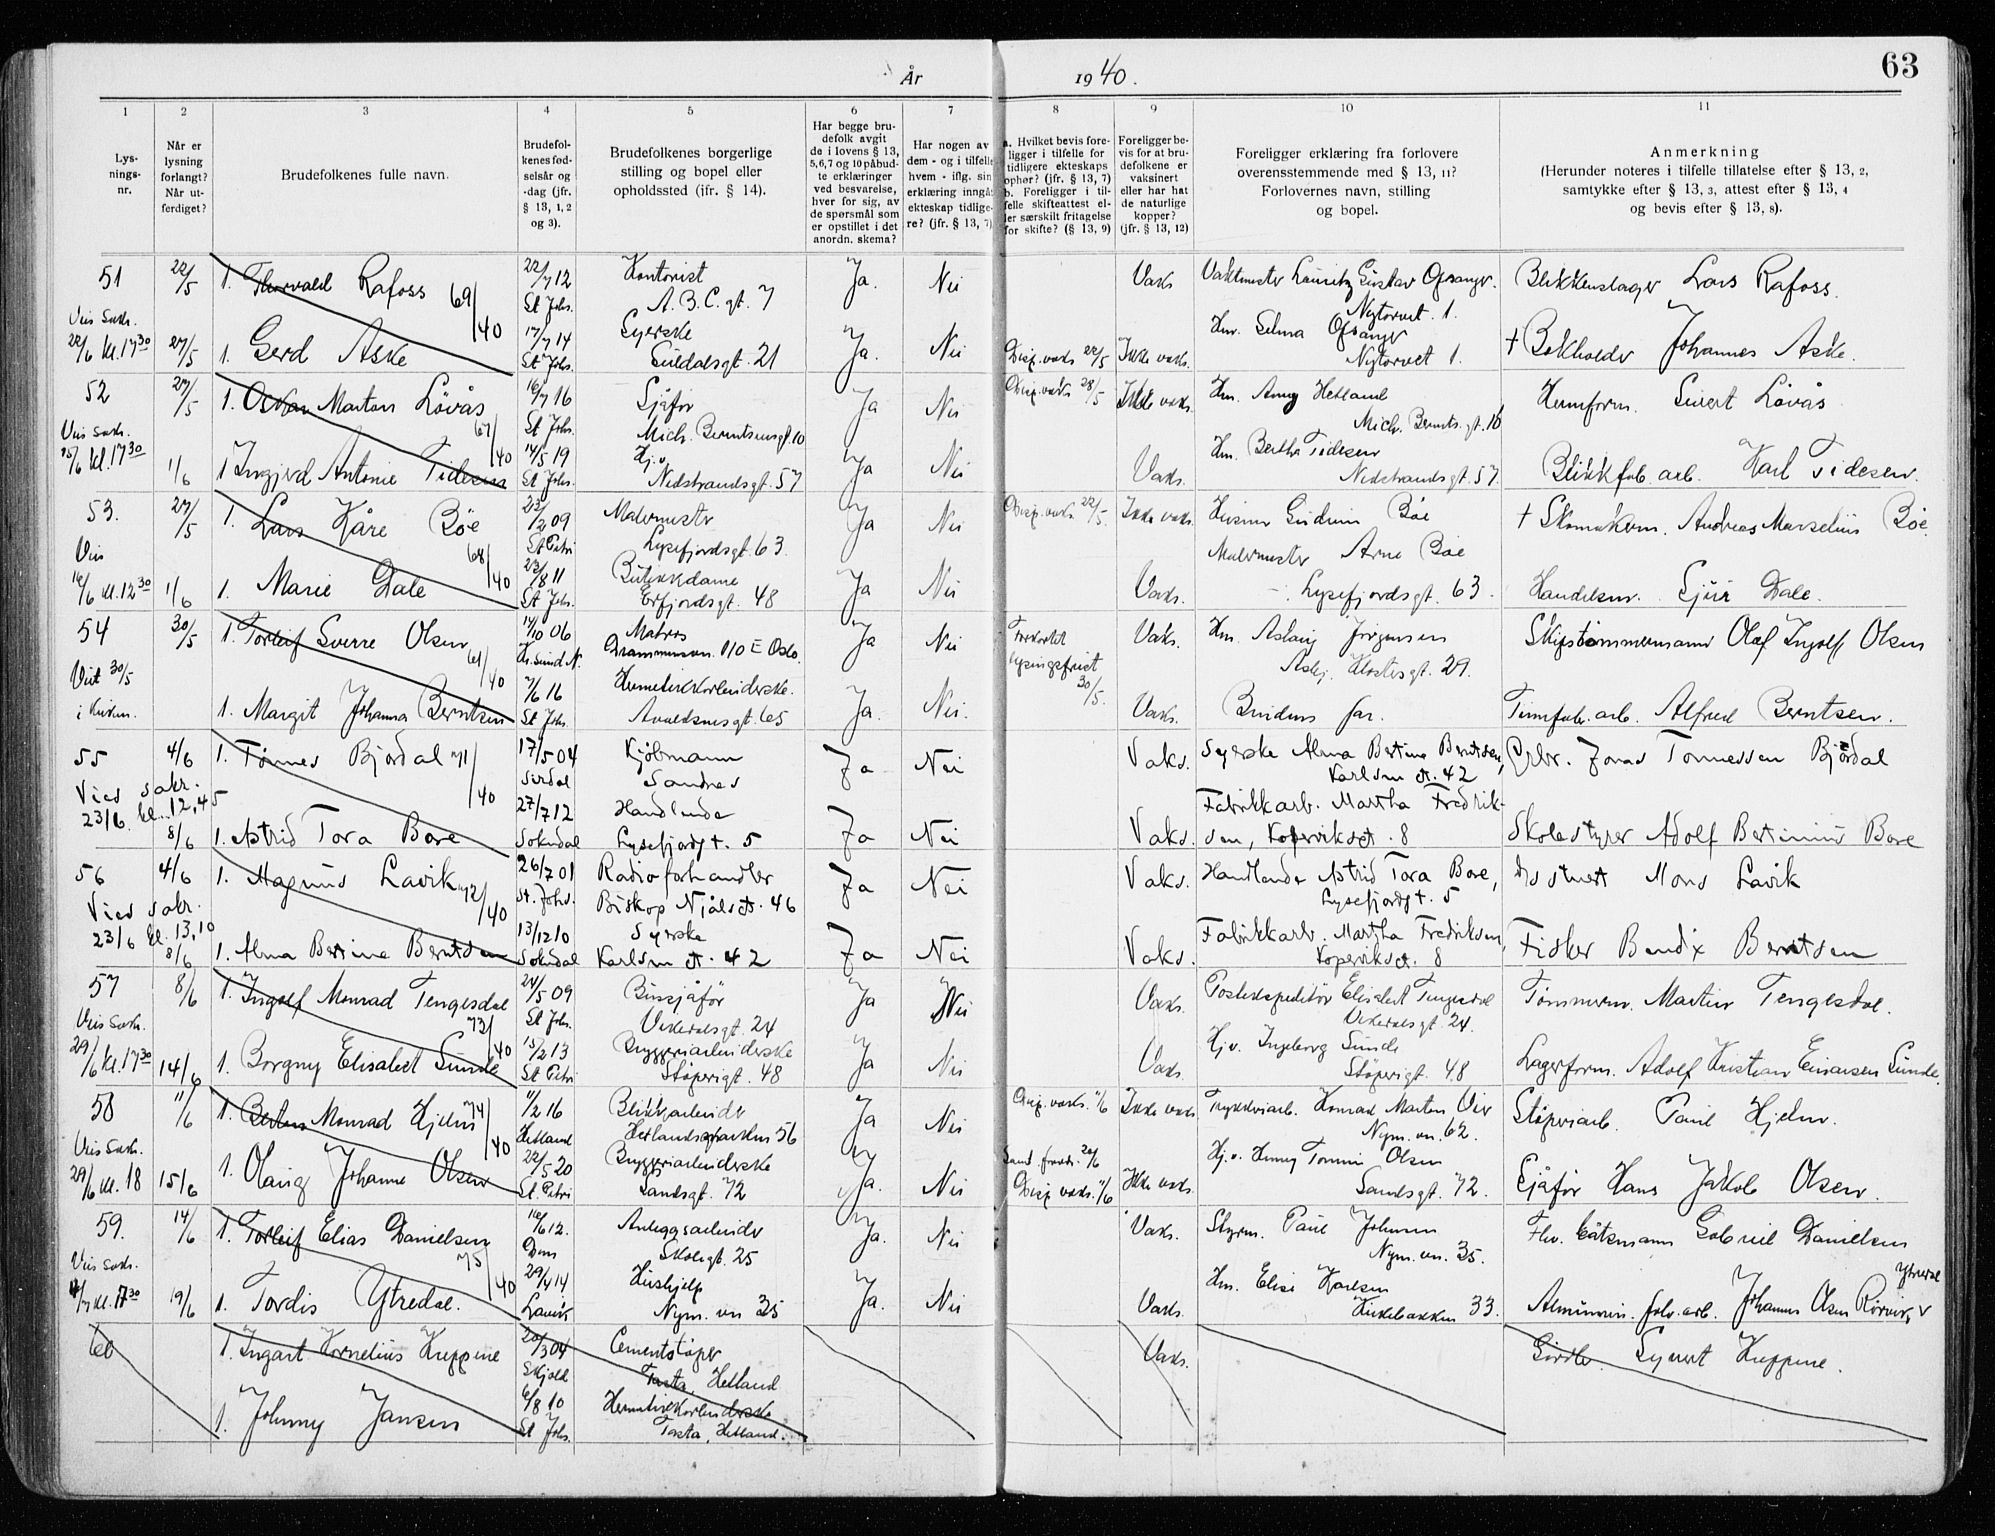 År 1940.
63
1 2 3 4 5 6 7 8 9 10 11
Lys-
nings-
nr.
Når er
lysning
forlangt?
Når ut-
ferdiget?
Brudefolkenes fulle navn.
Brudefol-
kenes fød-
selsår og
-dag (jfr.
§ 13, 1, 2
og 3).
Brudefolkenes borgerlige
stilling og bopel eller
opholdssted (jfr. § 14).
Har begge bru-
defolk avgit
de i lovens § 13,
5,6,7 og 10 påbud-
te erklæringer
ved besvarelse,
hver for sig, av
de spørsmål som
er opstillet i det
anordn. skema?
Har nogen av
dem - og i tilfelle
hvem - iflg. sin
erklæring inngå
ekteskap tidlige-
re? (jfr. § 13, 7)
a. Hvilket bevis fore-
ligger i tilfelle for
tidligere ekteskaps
ophør? (jfr. § 13, 7)
b. Foreligger i til-
felle skifteattest el-
ler særskilt fritagelse
for skifte? (§ 13, 9)
Foreligger be-
vis for at bru-
defolkene er
vaksinert
eller har hat
de naturlige
kopper?
(jfr. § 13, 12)
Foreligger erklæring fra forlovere
overensstemmende med § 13, 11?
Forlovernes navn, stilling
og bopel.
Anmerkning
(Herunder noteres i tilfelle tillatelse efter § 13, 2,
samtykke efter § 13, 3, attest efter § 13, 4
og bevis efter § 13, 8).
51 22/5 1. Thorvald Rafoss 69/40 22/7 12 Kontorist Ja. Nei Vaks Vaktmester Lauritz Gustav Ofsanger. Blikkenslager Lars Rafoss.
St Johs. A.B.C. gt. 7 Nytorvet 1.
Viet Sakr. 22/6 kl. 17 30 27/5 1. Gerd Aske 17/7 14 Syerske Ja. Nei Disp. vaks 22/5 Ikke vaks. Hm. Selma Ofsanger † Bokholder Johannes Aske.
St Johs. Suldalsgt. 21 Nytorvet 1.
52 27/5 1. Oskar Morton Løvås 67/40 16/7 16 Sjåfør Ja Nei Disp. vaks 28/5 Ikke vaks. Hm. Anny Hetland Hermform. Sivert Løvås
St Johs. Mich. Berntsensgt. 10 Mich. Bernts. gt. 10
Viet Sakr. 15/6 kl. 17 30 1/6 1 Ingjerd Antonie Tidesen 14/5 19 Hj.v. Ja Nei Vaks. Hm. Bertha Tidesen Blikkfab. arb. Karl Tidesen.
St Johs. Nedstrandsgt. 57 Nedstrandsgt. 57
53. 27/5 1. Lars Kåre Bøe 68/40 23/2 09 Malermester Ja Nei Disp. vaks. 22/5. Ikke vaks. Gudrun Bøe † Skomakerm. Andreas Marselius Bøe.
St Petri Lysefjordsgt. 63.
Viet 16/6 kl. 12 30 1/6 1. Marie Dale 23/8 11 Butikkdame Ja Nei Vaks. Malermester Arne Bøe Handelsm. Sjur Dale.
St Johs. Erfjordsgt. 48 Lysefjordsgt. 63.
54 30/5 1. Torleif Sverre Olsen 61/40 14/10 06 Matros Ja Nei Forkortet lysingsfrist 30/5. Vaks. Hm. Aslaug Jørgensen Skipstømmermann Olaf Ingolf Olsen
Kr. sund N. Drammensvn. 110 E Oslo. Asbj. Klostergt. 29.
Viet 30/5 1. Margit Johanna Berntsen 7/6 16 Hermetikkarbeiderske. Ja. Nei. Vaks. Brudens far. Tinnfab. arb. Alfred Berntsen.
St Johs. Avaldsnesgt. 65
55 4/6 1. Tønnes Bjørdal 71/40 17/5 04 Kjøbmann Ja Nei Vaks. Syerske Alma Bertine Berntsen, Gbr. Jonas Tønnessen Bjørdal
Sirdal Sandnes Karlsm. gt. 42
Vied sakr. 23/6. kl. 12,45 8/6 1. Astrid Tora Bore 27/7 12 Handlende Ja Nei Vaks. Fabrikkarb. Martha Fredrik-
Sokndal Lysefjordgt. 5 sen, Kopervikset. 8 Skolestyrer Adolf Bertinius Bore
56 4/6 1. Magnus Lavik 72/40 26/7 01 Radioforhandler Ja Nei Vaks. Handlende Astrid Tora Bore, Mons Lavik
St. Johs. Biskop Njåls gt. 46 Lysefjordgt. 5
Vied sakr. 23/6 kl. 13,10 8/6 1. Alma Bertine Berntsen 13/12 10 Syerske Ja Nei Vaks. Fabrikkarb. Martha Fredriksen, Fisker Bendix Berntsen
Sokndal Karlsm. gt. 42 Koperviksgt. 8
57 8/6 1. Ingolf Monrad Tengesdal 73/40 24/5 09 Bussjåfør Ja Nei Vaks. Postekspeditør Elisabet Tengesdal Tømmerm. Martin Tengesdal.
St Johs. Vikedalsgt. 24 Vikedalsgt. 24.
Viet Sakr. 29/6 kl. 17 30 14/6 1. Borgny Elisabet Sunde 15/2 13 Bryggeriarbeiderske Ja Nei Vaks. Hj.v. Ingeborg Sunde Lagerform. Adolf Kristian Einarsen Sunde.
St Petri Støperigt. 48 Støperigt. 48
58 11/6 1. Monrad Hjelm 74/40 11/2 16 Blikkarbeider Ja Nei Disp. vaks. 11/6 Ikke vaks. Trykkeriarb. Konrad Morton Vix Støperiarb. Paul Hjelm.
Hetland Hetlandsparken 56 Nym. vn. 62.
Viet Sakr. 29/6 kl. 18 15/6 1. Olaug Johanne Olsen 22/5 20 Bryggeriarbeiderske Ja. Nei Disp. vaks. 11/6 Ikke vaks. Hj.v. Henny Tomine Olsen Sjåfør Hans Jakob Olsen.
St. Petri Sandsgt. 72 Sandsgt. 72.
59. 14/6 1. Torleif Elias Danielsen 75/40 16/6 12. Anleggsarbeider Ja. Nei Vaks. Styrm. Paul Johnsen Fhv. båtsmann Gabriel Danielsen
Dom Skolegt. 25 Nym. vn. 35.
Viet Sakr. kl. 17 30 19/6 1. Tordis Ytredal. 29/4 14 Hushjelp Ja. Nei Vaks. Hm. Elise Karlsen Aluminium. fab. arb. Johannes Olsen Rørvik, Ytredal
Lavik Nym. vn 35 Kirkebakken 33.
60 1. Ingart Kornelius Kleppene 20/3 04 Cementstøper Vaks. Gårdbr. Syvert Kleppene.
Skjold Tasta, Hetland
1. Johnny Jansen 6/8 10 Hermetikkarbeiderske
St Johs. Tasta, Hetland.